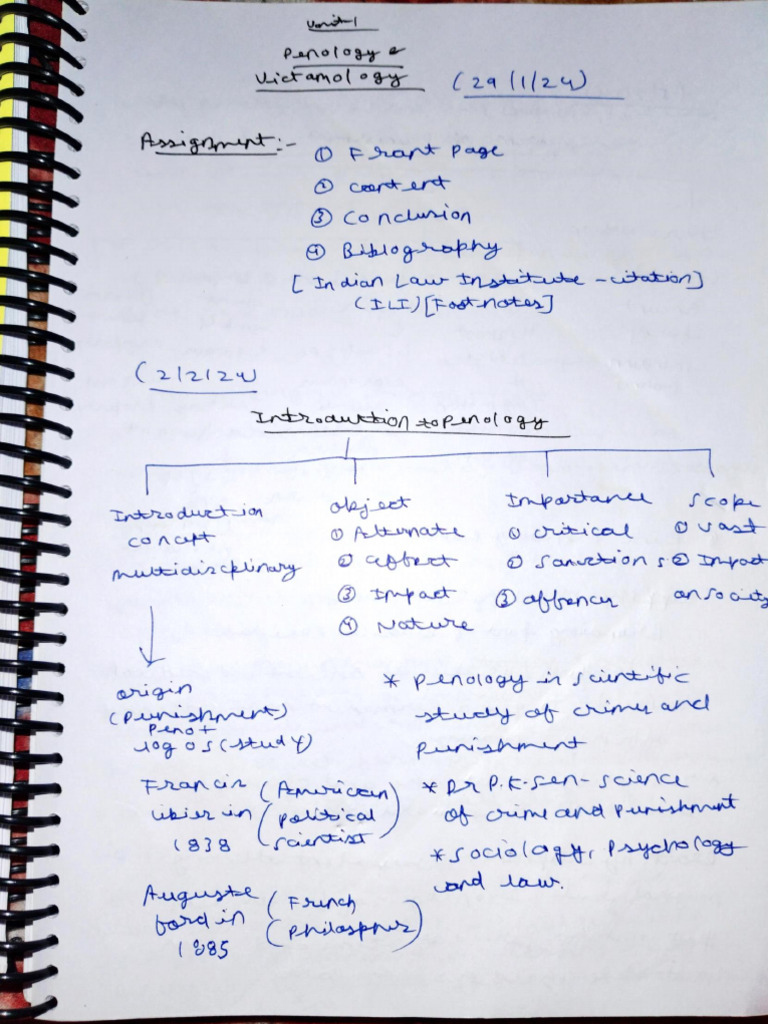 Unit-1
Penology &
Victamology
(29/1/24)
Assignment:-
① Front Page
② content
③ Conclusion
④ Bibliography
[Indian Law Institute - citation]
(ILI) [Footnotes]
(2/2/24)
Introduction to penology
Introduction
concept
multidisciplinary
object
① Alternate
② affect
③ Impact
④ Nature
Importance
① critical
② sanctions
③ offence
Scope
① vast
② Impact
on society
origin
(punishment)
peno +
logos (study)
Francis
in
1838
(American
political
scientist)
Auguste
in
1885
(French
Philospher)
* penology in scientific
study of crime and
punishment
* Dr P.K. Sen - science
of crime and punishment
* sociology, psychology
and law.